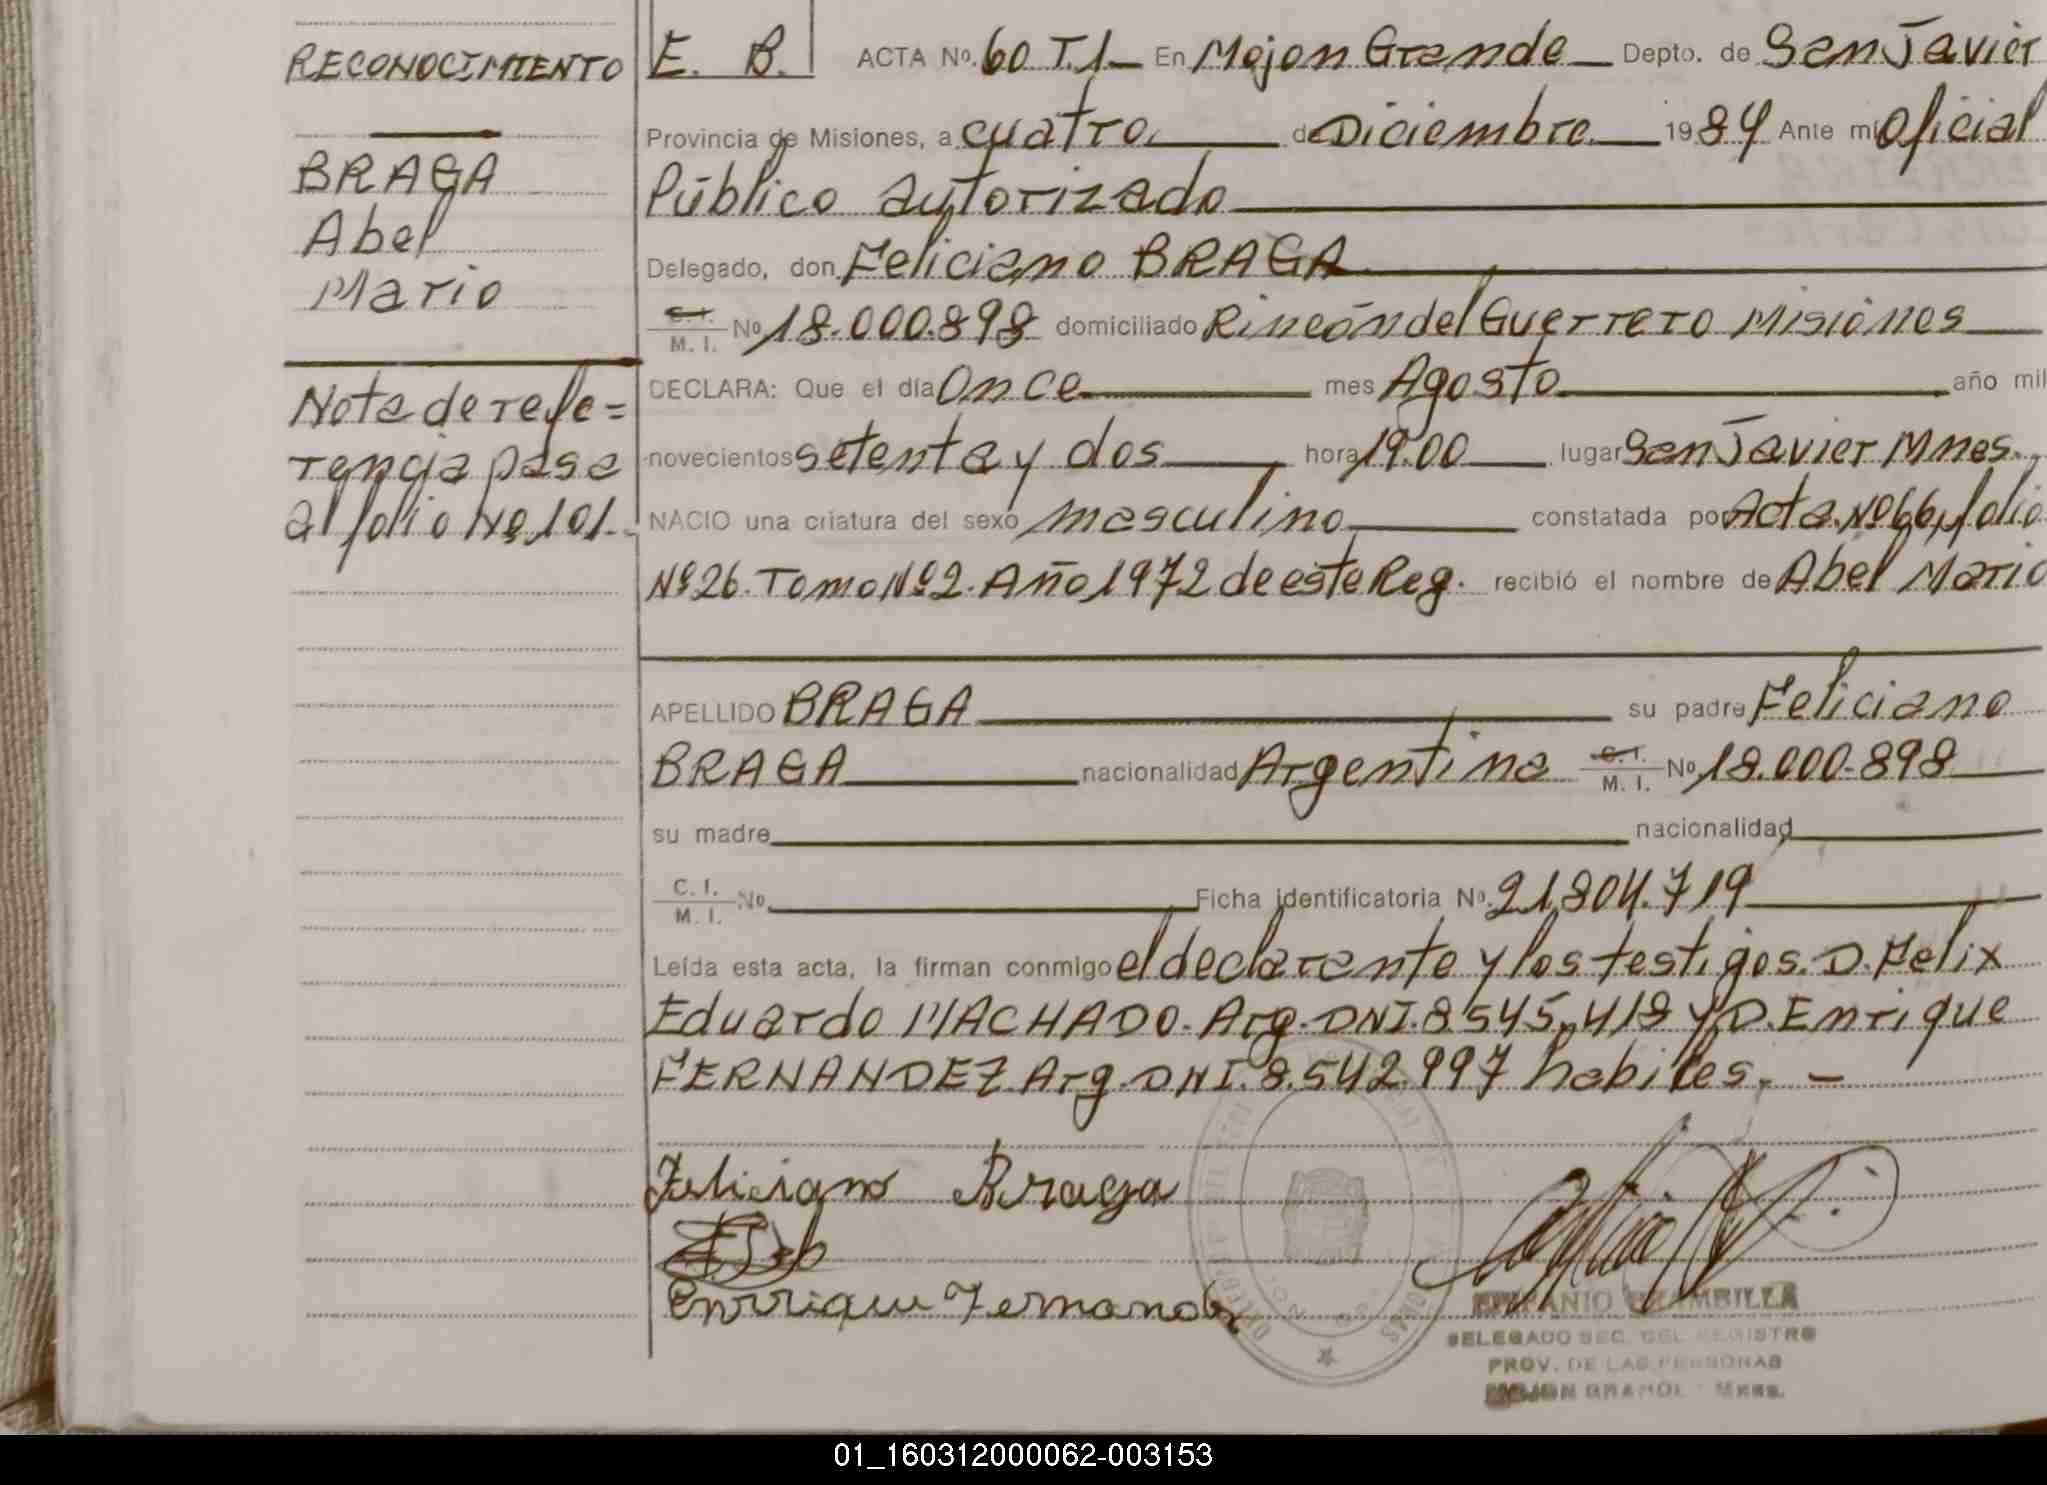 RECONOCIMIENTO
BRAGA
Abel
Mario
Nota de refe=
rencia pasa
al folio Nº 101.-
E. B.
ACTA Nº. 60 T.1 En Mojon Grande Depto. de San Javier
Provincia de Misiones, a cuatro de Diciembre 1984 Ante mí Oficial
Público autorizado
Delegado, don Feliciano BRAGA
C. I. / M. I. Nº 18.000.898 domiciliado Rincón del Guerrero Misiones
DECLARA: Que el día Once mes Agosto año mil
novecientos setenta y dos hora 19.00 lugar San Javier Mnes.
NACIO una criatura del sexo masculino constatada por Acta. Nº 66, folio
Nº 26. Tomo Nº 2. Año 1972 de este Reg. recibió el nombre de Abel Mario
APELLIDO BRAGA su padre Feliciano
BRAGA nacionalidad Argentina C. I. / M. I. Nº 18.000.898
su madre nacionalidad
C. I. / M. I. Nº. Ficha identificatoria Nº. 21.804.719
Leída esta acta, la firman conmigo el declarante y los testigos. D. Felix
Eduardo MACHADO. Arg. DNI. 8.545.418 y D. Enrique
FERNANDEZ Arg. DNI. 8.542.997 habiles. -
Feliciano Braga
Enrrique Fernandez
DELEGADO SEC. DEL REGISTRO
PROV. DE LAS PERSONAS
MOJON GRANDE - Mnes.
01_160312000062-003153